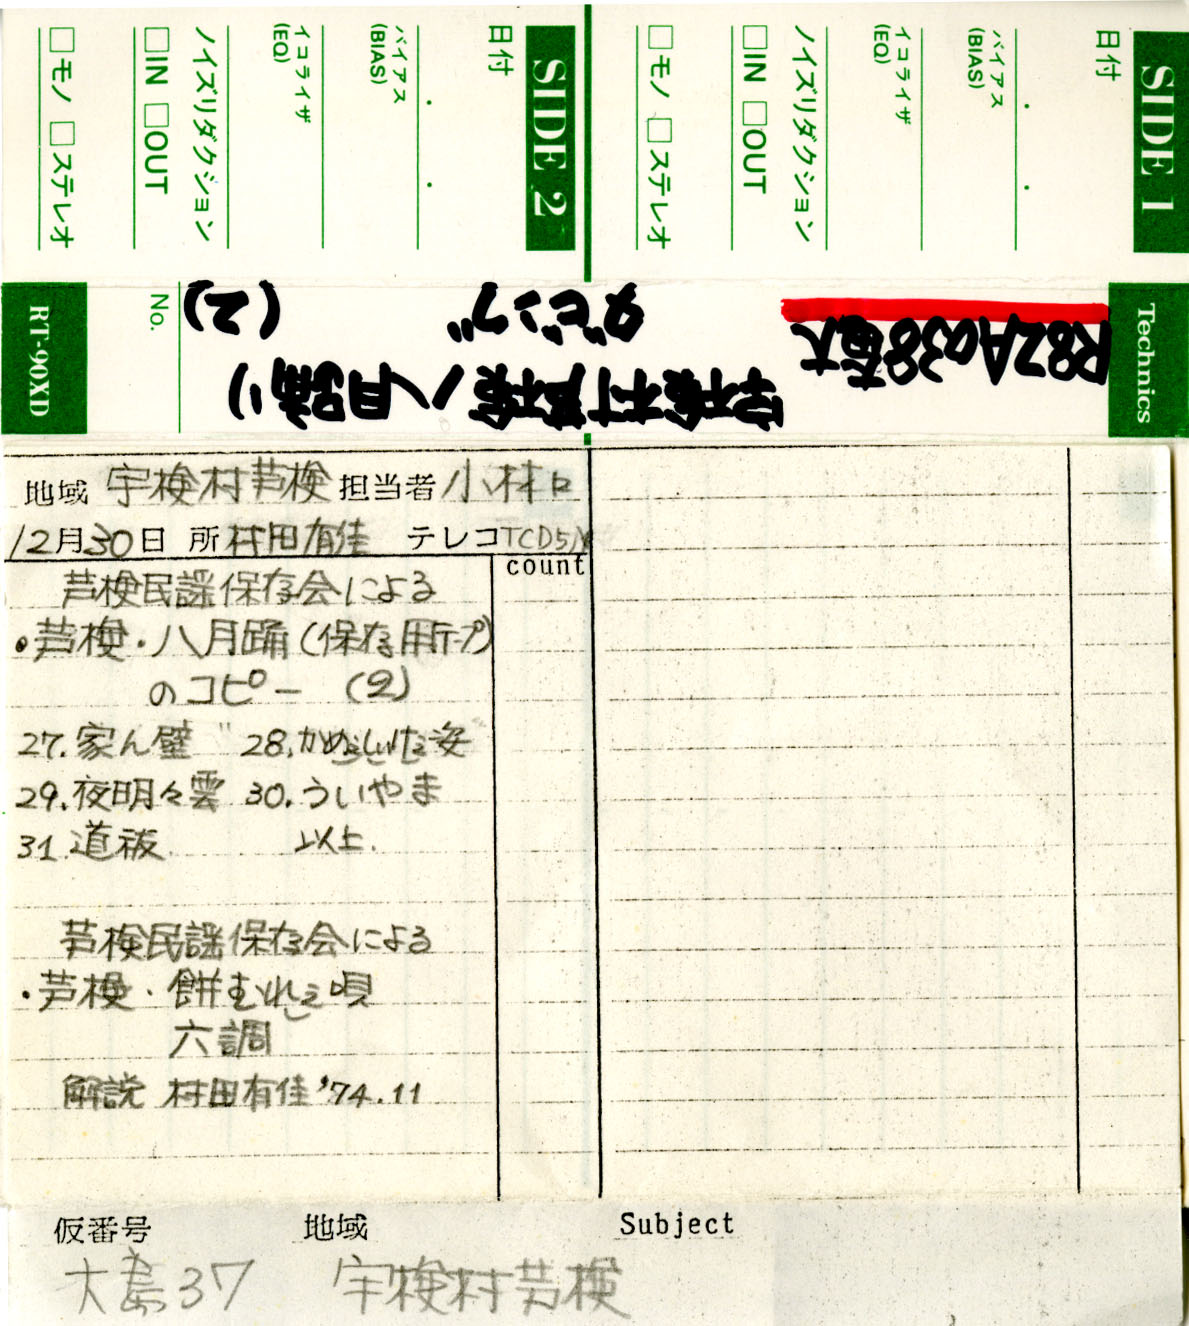 SIDE 1
日付
バイアス
(BIAS)
イコライザ
(EQ)
ノイズリダクション
□IN □OUT
□モノ □ステレオ
SIDE 2
日付
バイアス
(BIAS)
イコライザ
(EQ)
ノイズリダクション
□IN □OUT
□モノ □ステレオ
Technics
R82Aa38奄大
宇検村芦検八月踊り
ダビング (2)
No.
RT-90XD
地域 宇検村芦検 担当者 小林
12月30日 所 村田有佳 テレコ TCD5M
count
芦検民謡保存会による
・芦検・八月踊(保存用テープ)
のコピー (2)
27.家ん壁 28.かめらしゃた姿
29.夜明々雲 30.ういやま
31.道祓 以上.
芦検民謡保存会による
・芦検・餅むれぇ唄
六調
解説 村田有佳 '74.11
仮番号 地域 Subject
大島37 宇検村芦検